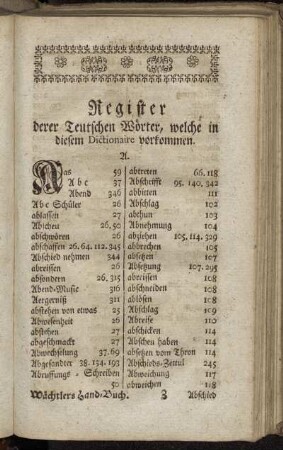 Register
derer Teutschen Wörter, welche in
diesem Dictionaire vorkommen.
A.
Aas 59
A b c 37
Abend 346
Abc Schüler 26
ablassen 27
Abicheu 26.50
abschwören 26
abschaffen 26.64.112.345
Abschied nehmen 344
abreissen 26
absondern 26.315
Abend-Music 316
Aergerniß 311
abstehen von etwas 25
Abwesenheit 26
abstehen 27
abgeschmackt 27
Abwechselung 37.69
Abgesandter 38.134.193
Abruffungs-Schreiben
50
abtreten 66.118
Abschrifft 95.140.342
abbitten 111
Abschlag 102
abthun 103
Abnehmung 104
abziehen 105.114.329
abbrechen 105
absetzen 107
Absetzung 107.295
abreissen 108
abschneiden 108
ablösen 108
Abschlag 109
Abreise 110
abschicken 114
Abscheu haben 114
absetzen vom Thron 114
Abschieds-Zettul 245
Abweichung 117
abweichen 118
Wächtlers Hand-Buch. Z Abschied